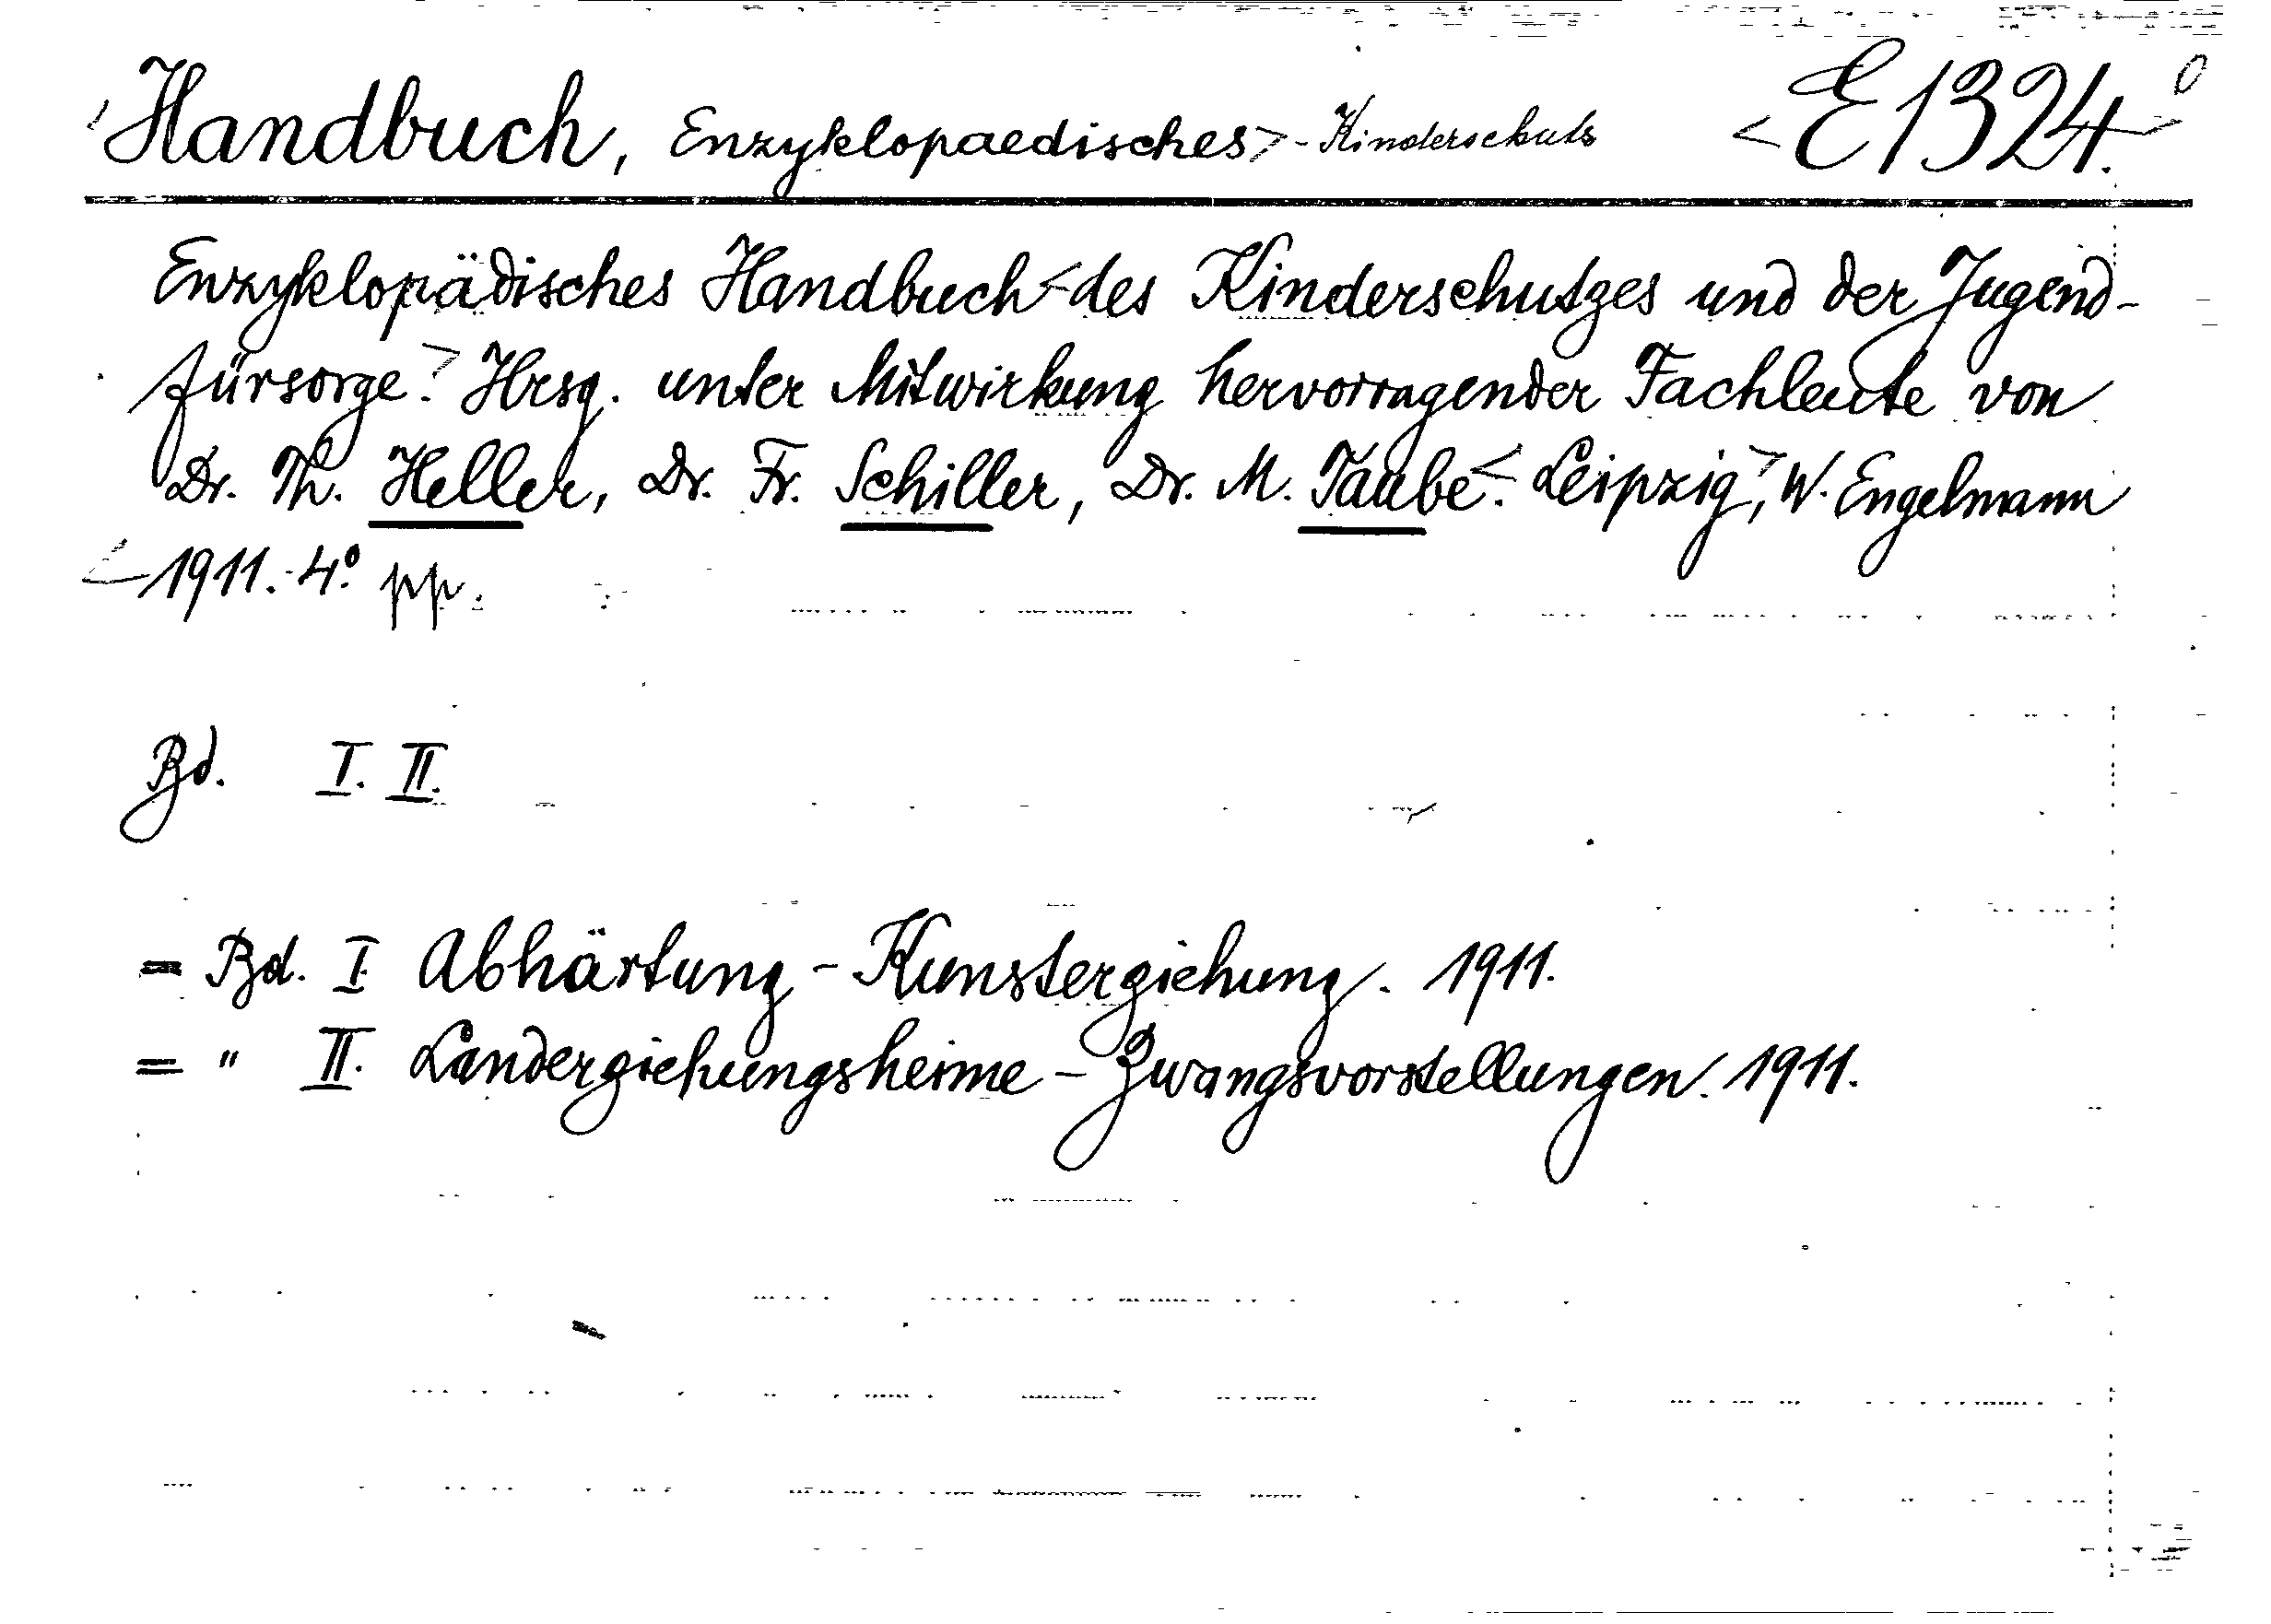 Handbuch, Enzyklopaedisches> - Kinderschutz <E1324.>0
Enzyklopädisches Handbuch < des Kinderschutzes und der Jugend-
fürsorge.> Hrsg. unter Mitwirkung hervorragender Fachleute von
Dr. Th. Heller, Dr. Fr. Schiller, Dr. M. Taube<. Leipzig>, W. Engelmann
<1911. 4º. pp.
Bd. I. II.
= Bd. I. Abhärtung - Kunsterziehung. 1911.
= " II. Landerziehungsheime - Zwangsvorstellungen. 1911.